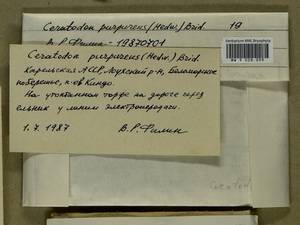 Ceratodon purpureus (Hedw.) Brid. 19
В.Р. Филин - 19870701
Ceratodon purpureus (Hedw.) Brid.
Карельская АССР, Лоухский р-н, Беломорское
побережье, п-ов Киндо.
На утоптанном торфе на дороге через
ельник у линии электропередачи.
1.7.1987 В.Р. Филин